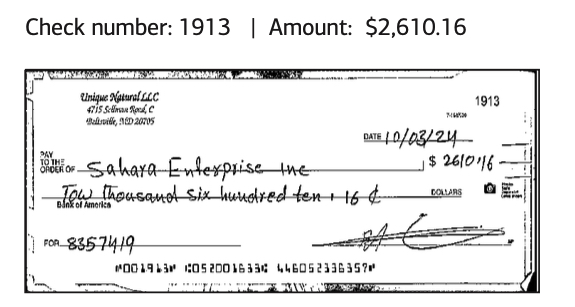 Check number: 1913 | Amount: $2,610.16
Unique Natural LLC
1913
4715 Sellman Road, C
Beltsville, MD 20705
DATE 10/03/24
PAY
TO THE
ORDER OF Sahara Enterprise Inc $ 2610.16
Tow Thousand six hundred ten + 16 ¢ DOLLARS
Bank of America
FOR 8357419
⑈001913⑈ ⑆052001633⑆ 446052336357⑈